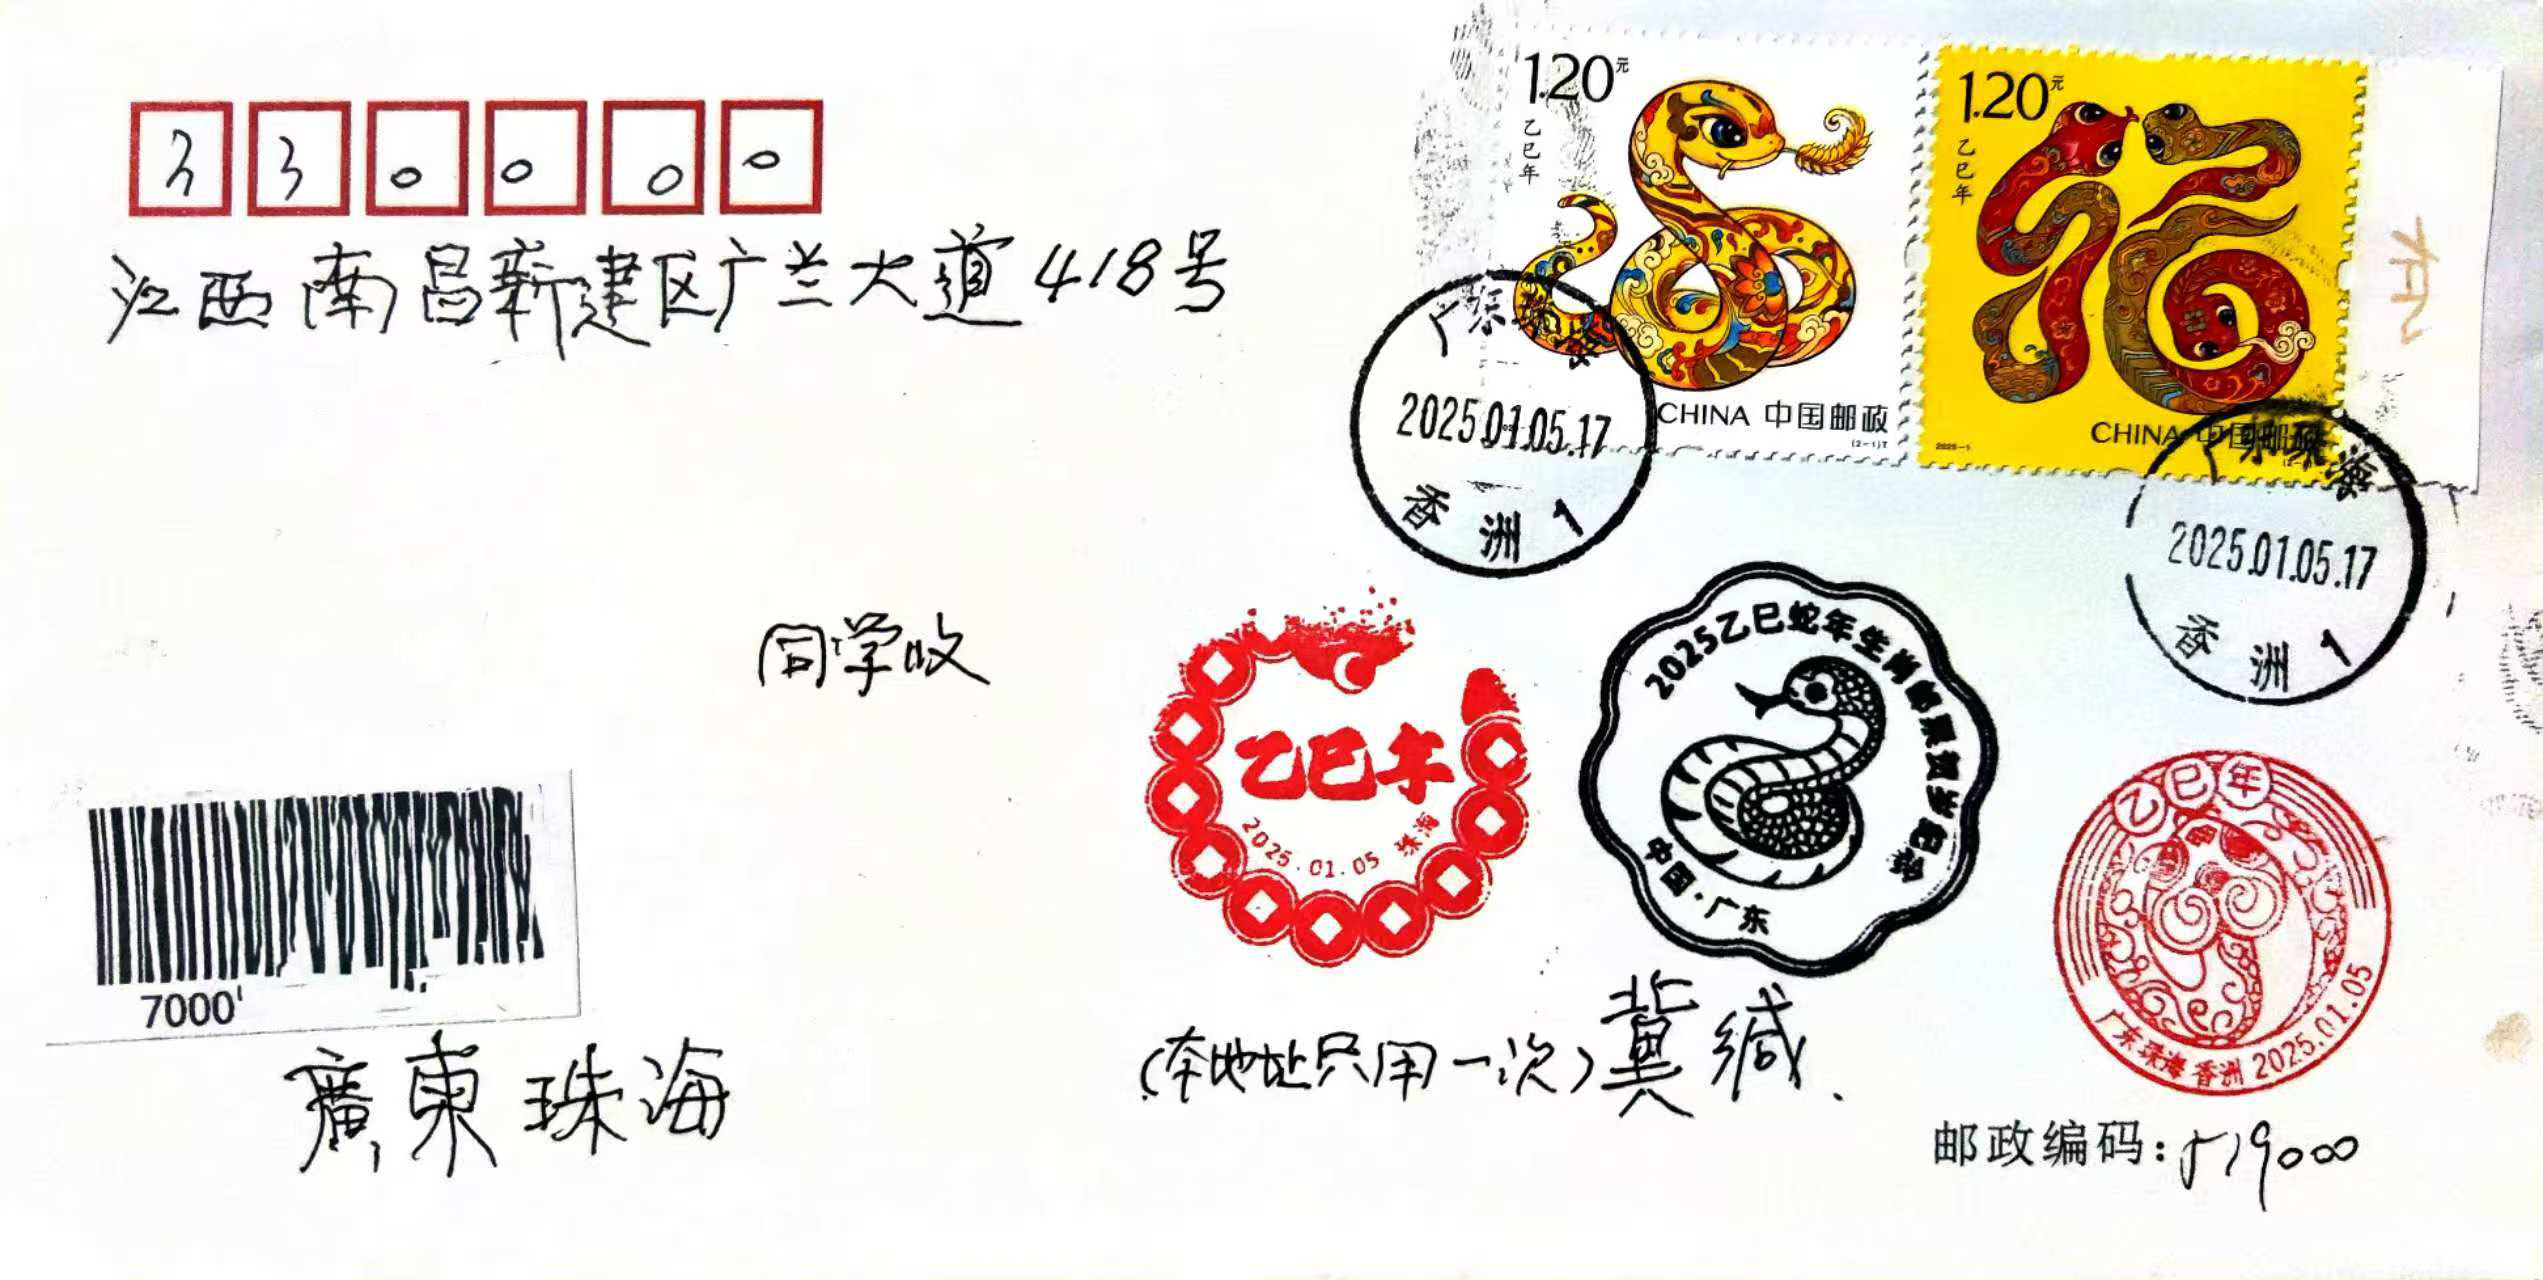 330000
江西南昌新建区广兰大道418号
1.20元
乙巳年
CHINA 中国邮政
(2-1)T
1.20元
乙巳年
2025-1
CHINA 中国邮政
广东珠海
2025.01.05.17
香洲 1
广东珠海
2025.01.05.17
香洲 1
同学收
乙巳年
2025.01.05 珠海
2025乙巳蛇年生肖邮票贺岁纪念
中国·广东
乙巳年
广东珠海香洲 2025.01.05
7000
廣東珠海
(本地址只用一次)冀缄.
邮政编码:519000